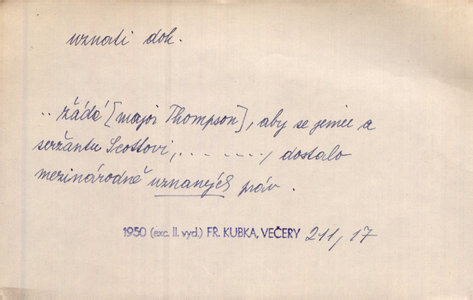 uznati dok.
.. žádá [major Thompson], aby se jemu a
seržantu Scottovi, . . . . . . , dostalo
mezinárodně uznaných práv.
1950 (exc. II. vyd.) FR. KUBKA, VEČERY 211, 17